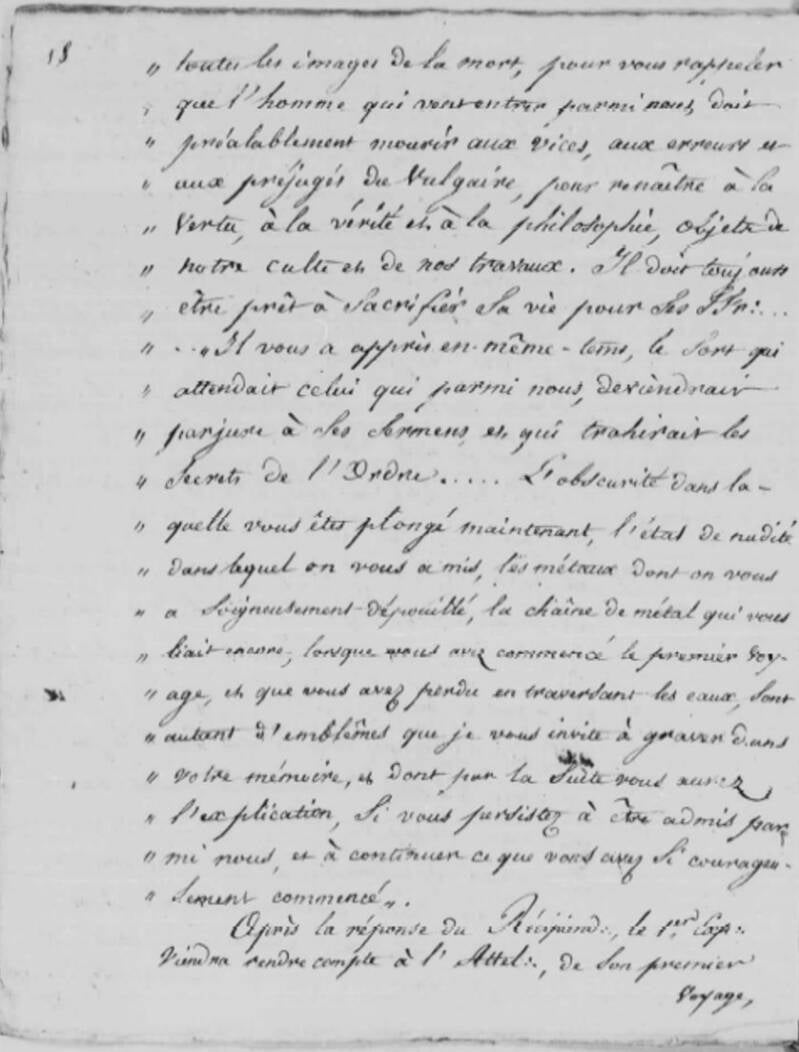 18
„ toutes les images de la mort, pour vous rappeler
„ que l'homme qui veut entrer parmi nous, doit
„ préalablement mourir aux vices, aux erreurs et
„ aux préjugés du Vulgaire, pour renaître à la
„ Vertu, à la vérité et à la philosophie, objets de
„ notre culte et de nos travaux. Il doit toujours
„ être prêt à Sacrifier Sa vie pour Ses FFr:...
„ ...„ Il vous a appris en-même-tems, le Sort qui
„ attendait celui qui parmi nous, deviendrait
„ parjure à Ses Sermens, et qui trahirait les
„ Secrets de l'Ordre..... L'obscurité dans la-
„ quelle vous êtes plongé maintenant, l'état de nudité
„ dans lequel on vous a mis, les métaux dont on vous
„ a Soigneusement dépouillé, la chaîne de métal qui vous
„ liait encore, lorsque vous avez commencé le premier voy-
„ age, et que vous avez perdu en traversant les eaux, sont
„ autant d'emblêmes que je vous invite à graver dans
„ votre mémoire, et dont par la Suite vous aurez
„ l'explication, Si vous persistez à être admis par
„ mi nous, et à continuer ce que vous avez Si courageu-
„ sement commencé „.
Après la réponse du Récipiend:, le 1.er Exp:
Viendra rendre compte à l'Attel:, de Son premier
voyage,